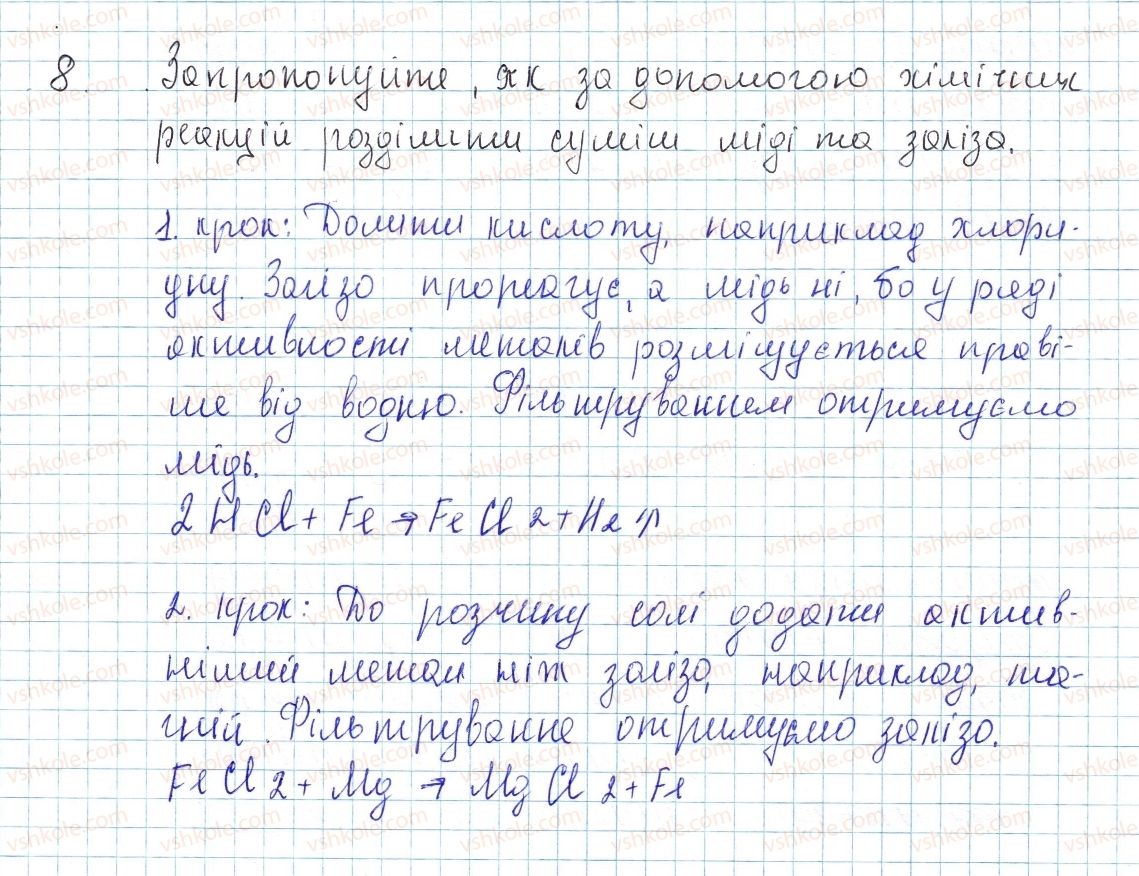 8. Запропонуйте, як за допомогою хімічних
реакцій розділити суміш міді та заліза.
1. крок: Долити кислоту, наприклад хлори-
дну. Залізо прореагує, а мідь ні, бо у ряді
активності металів розміщується праві-
ше від водню. Фільтруванням отримуємо
мідь.
2HCl + Fe → FeCl2 + H2↑
2. крок: До розчину солі додати актив-
ніший метал ніж залізо, наприклад, ма-
гній. Фільтрування отримуємо залізо.
FeCl2 + Mg → MgCl2 + Fe